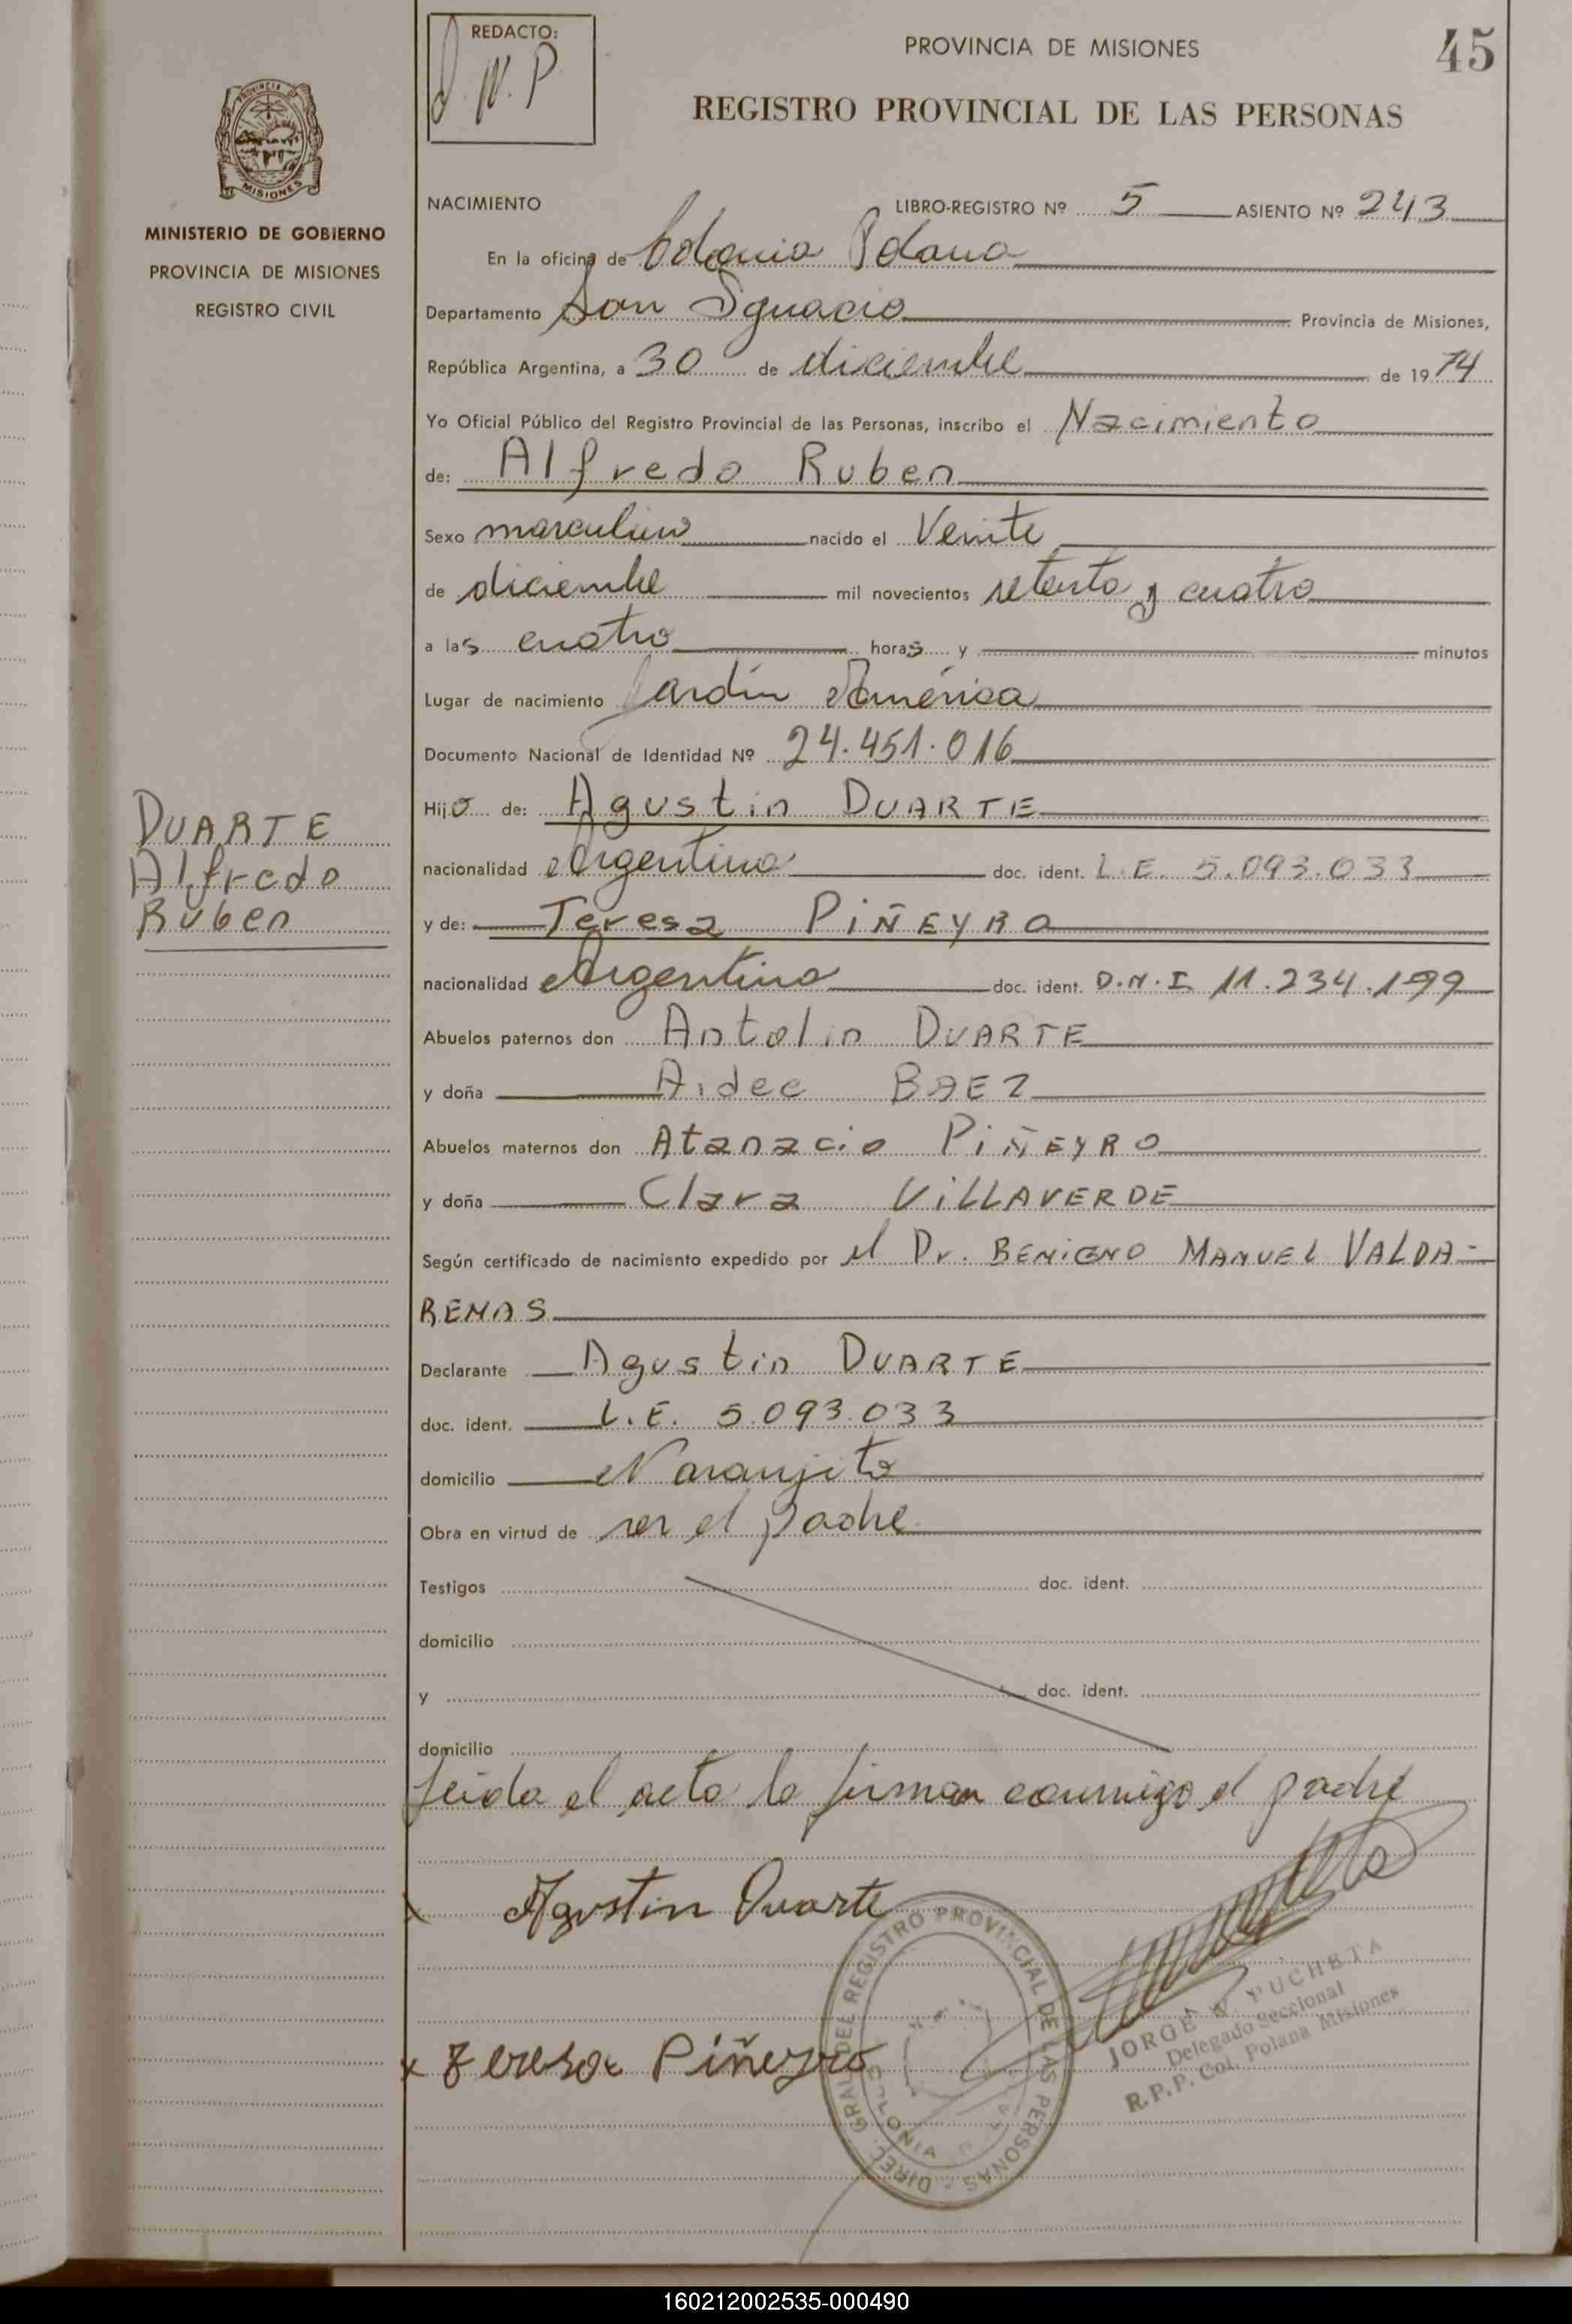 REDACTO:
J. W. P.
PROVINCIA DE MISIONES
45
REGISTRO PROVINCIAL DE LAS PERSONAS
PROVINCIA DE
MISIONES
MINISTERIO DE GOBIERNO
PROVINCIA DE MISIONES
REGISTRO CIVIL
NACIMIENTO LIBRO-REGISTRO Nº 5 ASIENTO Nº 243
En la oficina de Colonia Polana
Departamento San Ignacio Provincia de Misiones,
República Argentina, a 30 de diciembre de 1974
Yo Oficial Público del Registro Provincial de las Personas, inscribo el Nacimiento
de: Alfredo Ruben
Sexo masculino nacido el Veinte
de diciembre mil novecientos setenta y cuatro
a las cuatro horas y minutos
Lugar de nacimiento Jardín América
Documento Nacional de Identidad Nº 24.451.016
Hijo de: Agustin DUARTE
nacionalidad Argentina doc. ident. L.E. 5.093.033
y de: Teresa PIÑEYRO
nacionalidad Argentina doc. ident. D.N.I 11.234.199
Abuelos paternos don Antolin DUARTE
y doña Aidee BAEZ
Abuelos maternos don Atanacio PIÑEYRO
y doña Clara VILLAVERDE
Según certificado de nacimiento expedido por el Dr. BENIGNO MANUEL VALDA-
RENAS
Declarante Agustin DUARTE
doc. ident. L.E. 5.093.033
domicilio Naranjito
Obra en virtud de ser el padre
Testigos doc. ident.
domicilio
y doc. ident.
domicilio
Leida el acta la firman conmigo el padre
x Agustin Duarte
x Teresa Piñeyro
DIREC. GRAL. DEL REGISTRO PROVINCIAL DE LAS PERSONAS -
COLONIA
JORGE W PUCHETA
Delegado Seccional
R.P.P. Col. Polana Misiones
DUARTE
Alfredo
Ruben
160212002535-000490